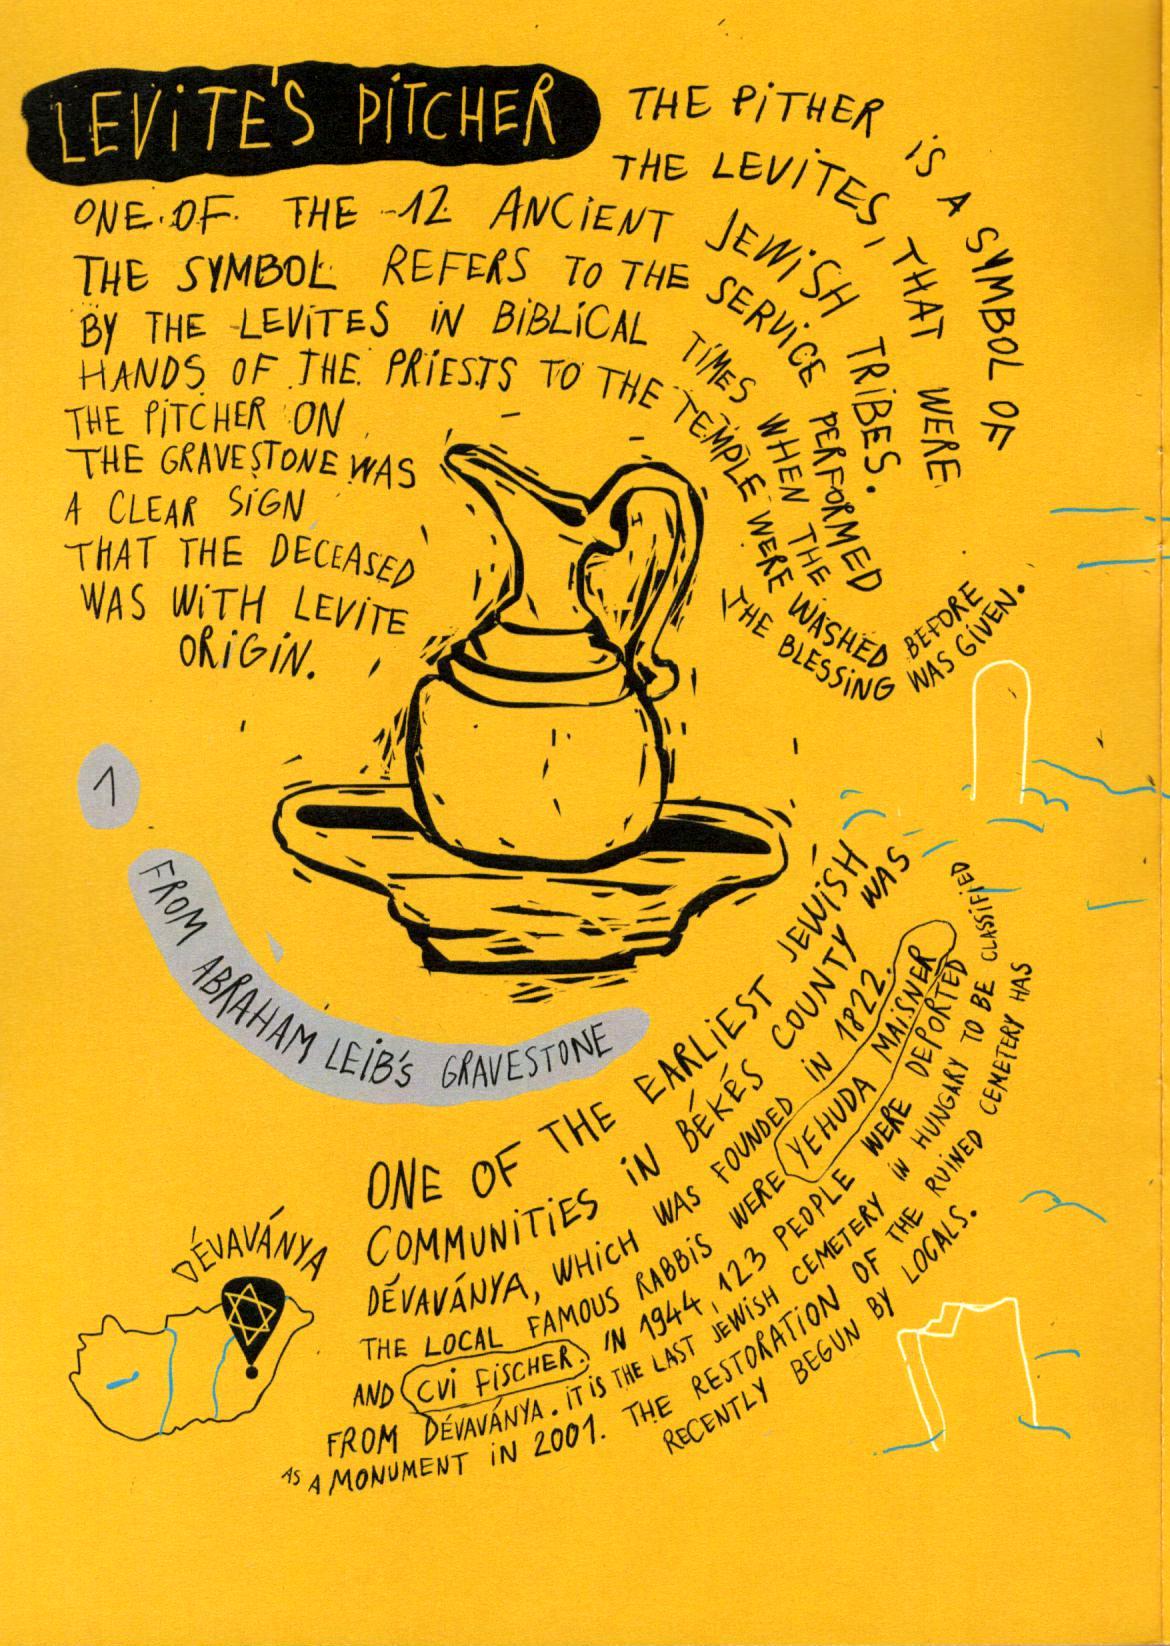 LEVITE'S PITCHER
THE PITHER IS A SYMBOL OF
THE LEVITES, THAT WERE
ONE OF THE 12 ANCIENT JEWISH TRIBES.
THE SYMBOL REFERS TO THE SERVICE PERFORMED
BY THE LEVITES IN BIBLICAL TIMES WHEN THE
HANDS OF THE PRIESTS TO THE TEMPLE WERE WASHED BEFORE
THE BLESSING WAS GIVEN.
THE PITCHER ON
THE GRAVESTONE WAS
A CLEAR SIGN
THAT THE DECEASED
WAS WITH LEVITE
ORIGIN.
1
FROM ABRAHAM LEIB'S GRAVESTONE
ONE OF THE EARLIEST JEWISH
COMMUNITIES IN BÉKÉS COUNTY WAS
DÉVAVÁNYA, WHICH WAS FOUNDED IN 1822.
THE LOCAL FAMOUS RABBIS WERE YEHUDA MAISNER
AND CVI FISCHER. IN 1944, 123 PEOPLE WERE DEPORTED
FROM DÉVAVÁNYA. IT IS THE LAST JEWISH CEMETERY IN HUNGARY TO BE CLASSIFIED
AS A MONUMENT IN 2001. THE RESTORATION OF THE RUINED CEMETERY HAS
RECENTLY BEGUN BY LOCALS.
DÉVAVÁNYA